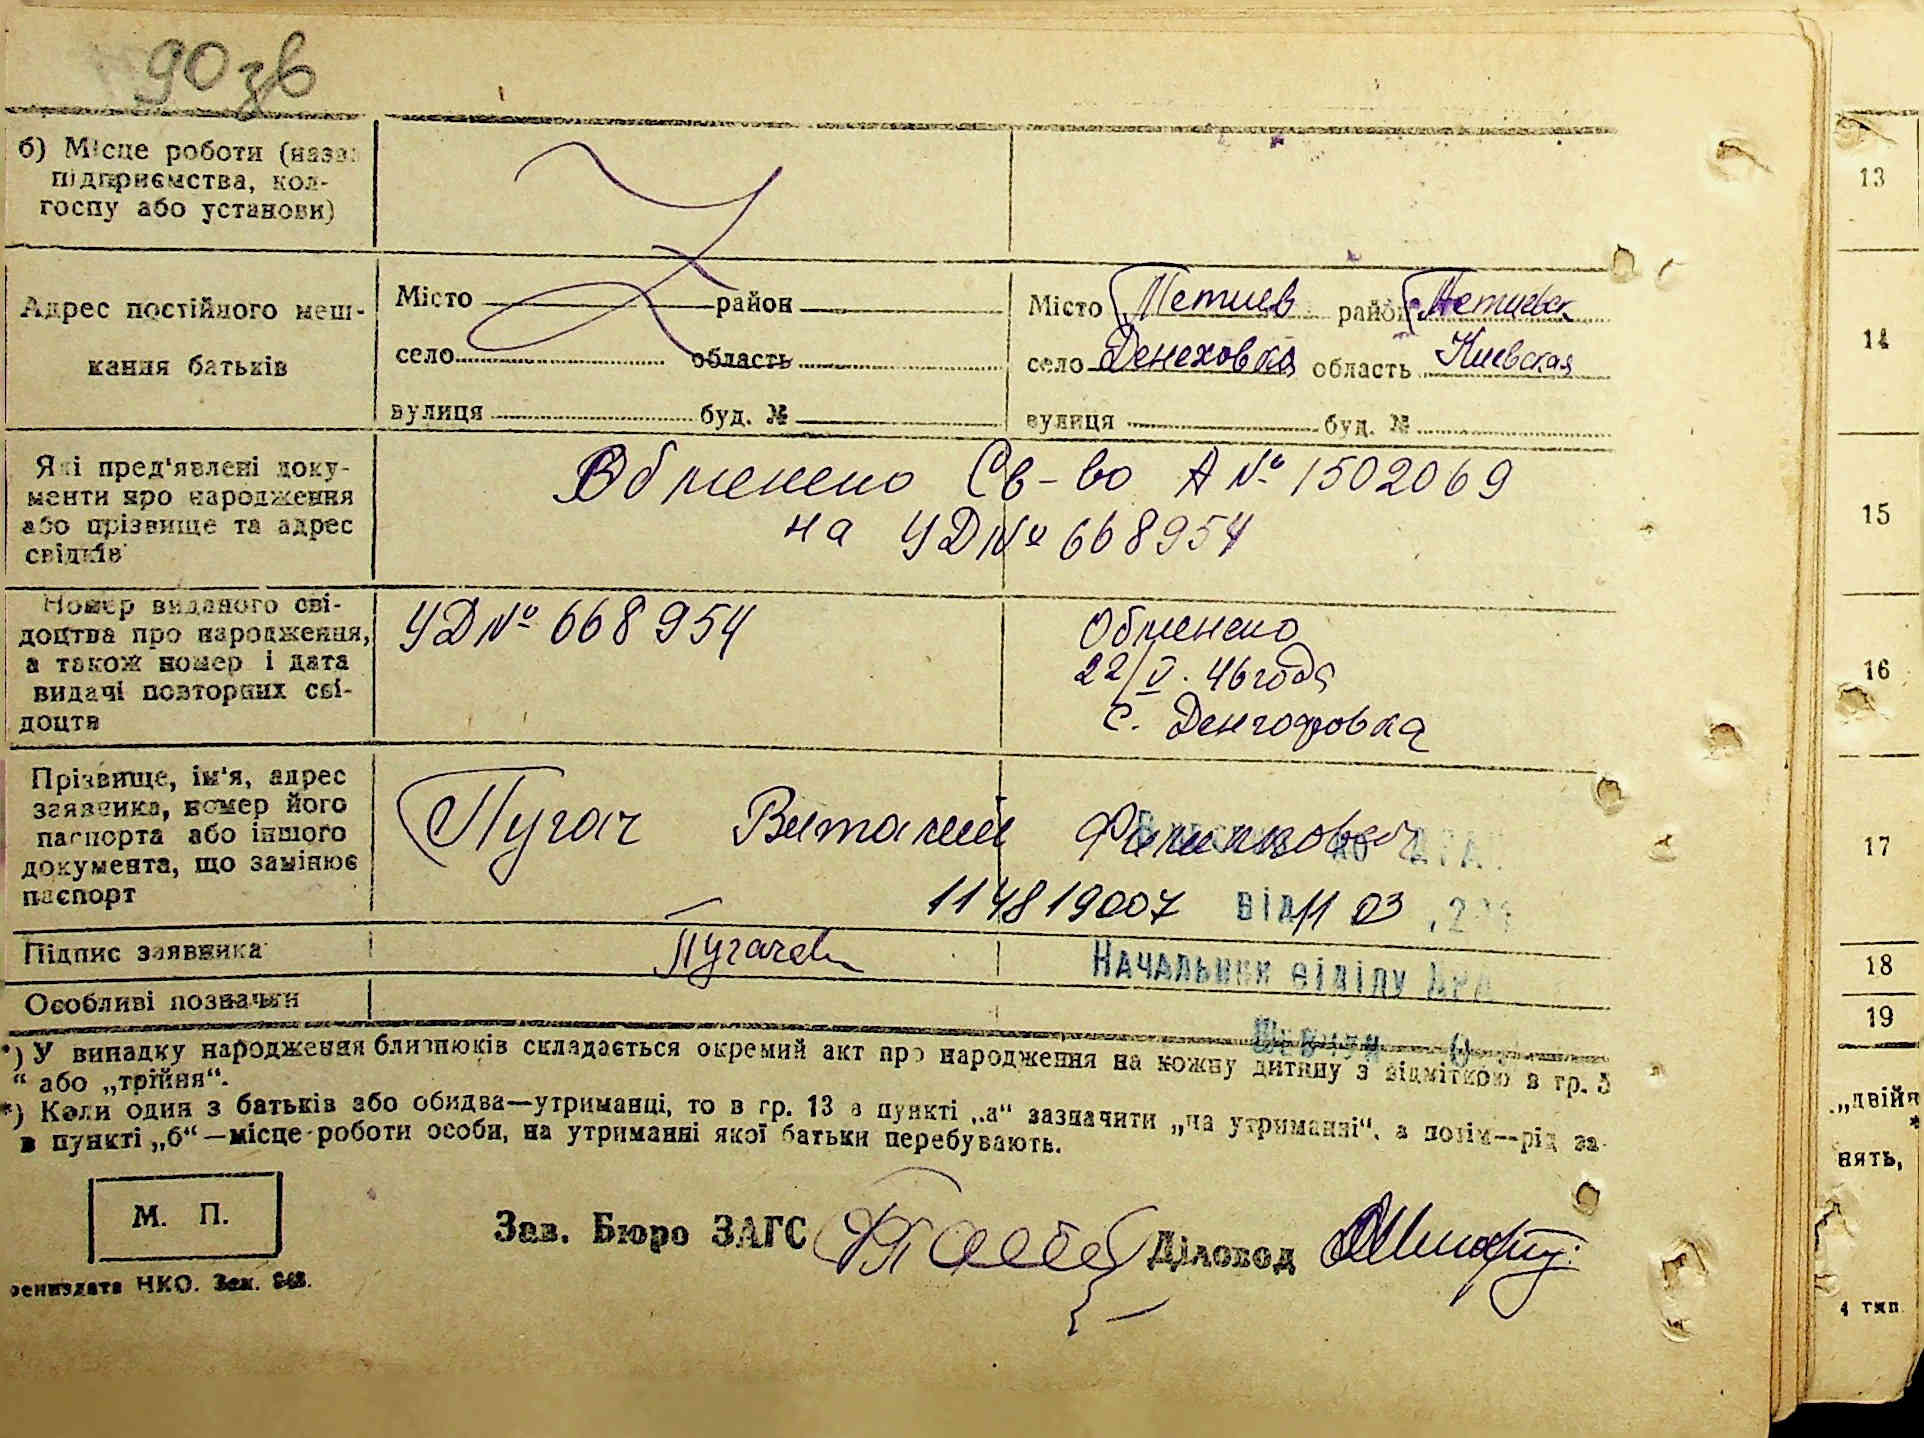 90 зв
б) Місце роботи (назва
підприємства, кол-
госпу або установи)
13
Адрес постійного меш-
кання батьків
Місто район
село область
вулиця буд. №
Місто Тетиев район Тетиевск
село Денеховка область Киевская
вулиця буд. №
14
Які пред'явлені доку-
менти про народження
або прізвище та адрес
свідків
Обменено Св-во А № 1502069
на УД № 668954
15
Номер виданого сві-
доцтва про народження,
а також номер і дата
видачі повторних сві-
доцтв
УД № 668954
Обменено
22/V. 46 года
с. Денгофовка
16
Прізвище, ім'я, адрес
заявника, номер його
паспорта або іншого
документа, що замінює
паспорт
Пугач Виталий Филиппович
114819007 від 11 03
17
Підпис заявника
Пугачев
Начальник відділу ДРА
18
Особливі позначки
19
*) У випадку народження близнюків складається окремий акт про народження на кожну дитину з відміткою в гр. 5
“ або „трійня“.
*) Коли один з батьків або обидва—утриманці, то в гр. 13 в пункті „а“ зазначити „на утриманні“, а потім—рід за-
в пункті „б“—місце роботи особи, на утриманні якої батьки перебувають.
„двійн
нять,
М. П.
Зав. Бюро ЗАГС
Діловод
рениздата НКО. Зак. 848.
4 тип